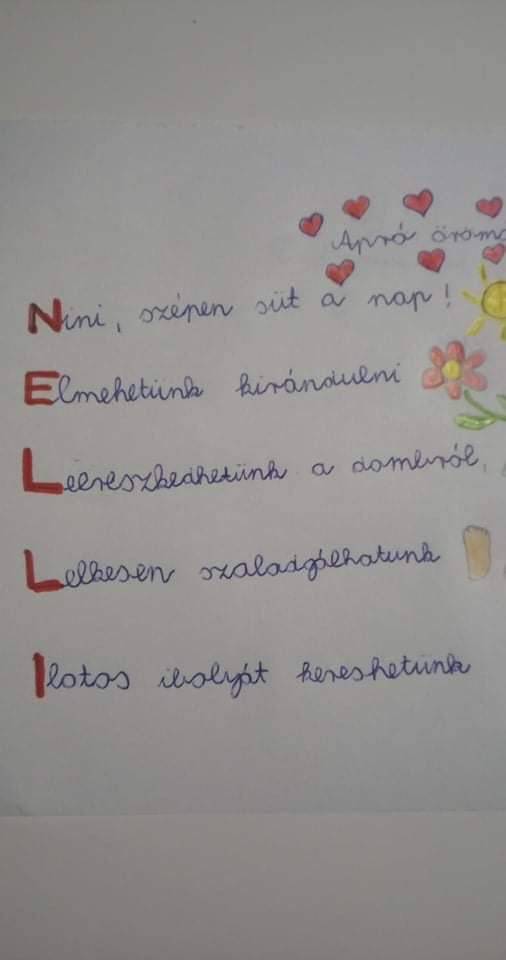 Apró öröm
Nini, szépen süt a nap!
Elmehetünk kirándulni
Leereszkedhetünk a dombról,
Lelkesen szaladgálhatunk
Ilatos ibolyát kereshetünk